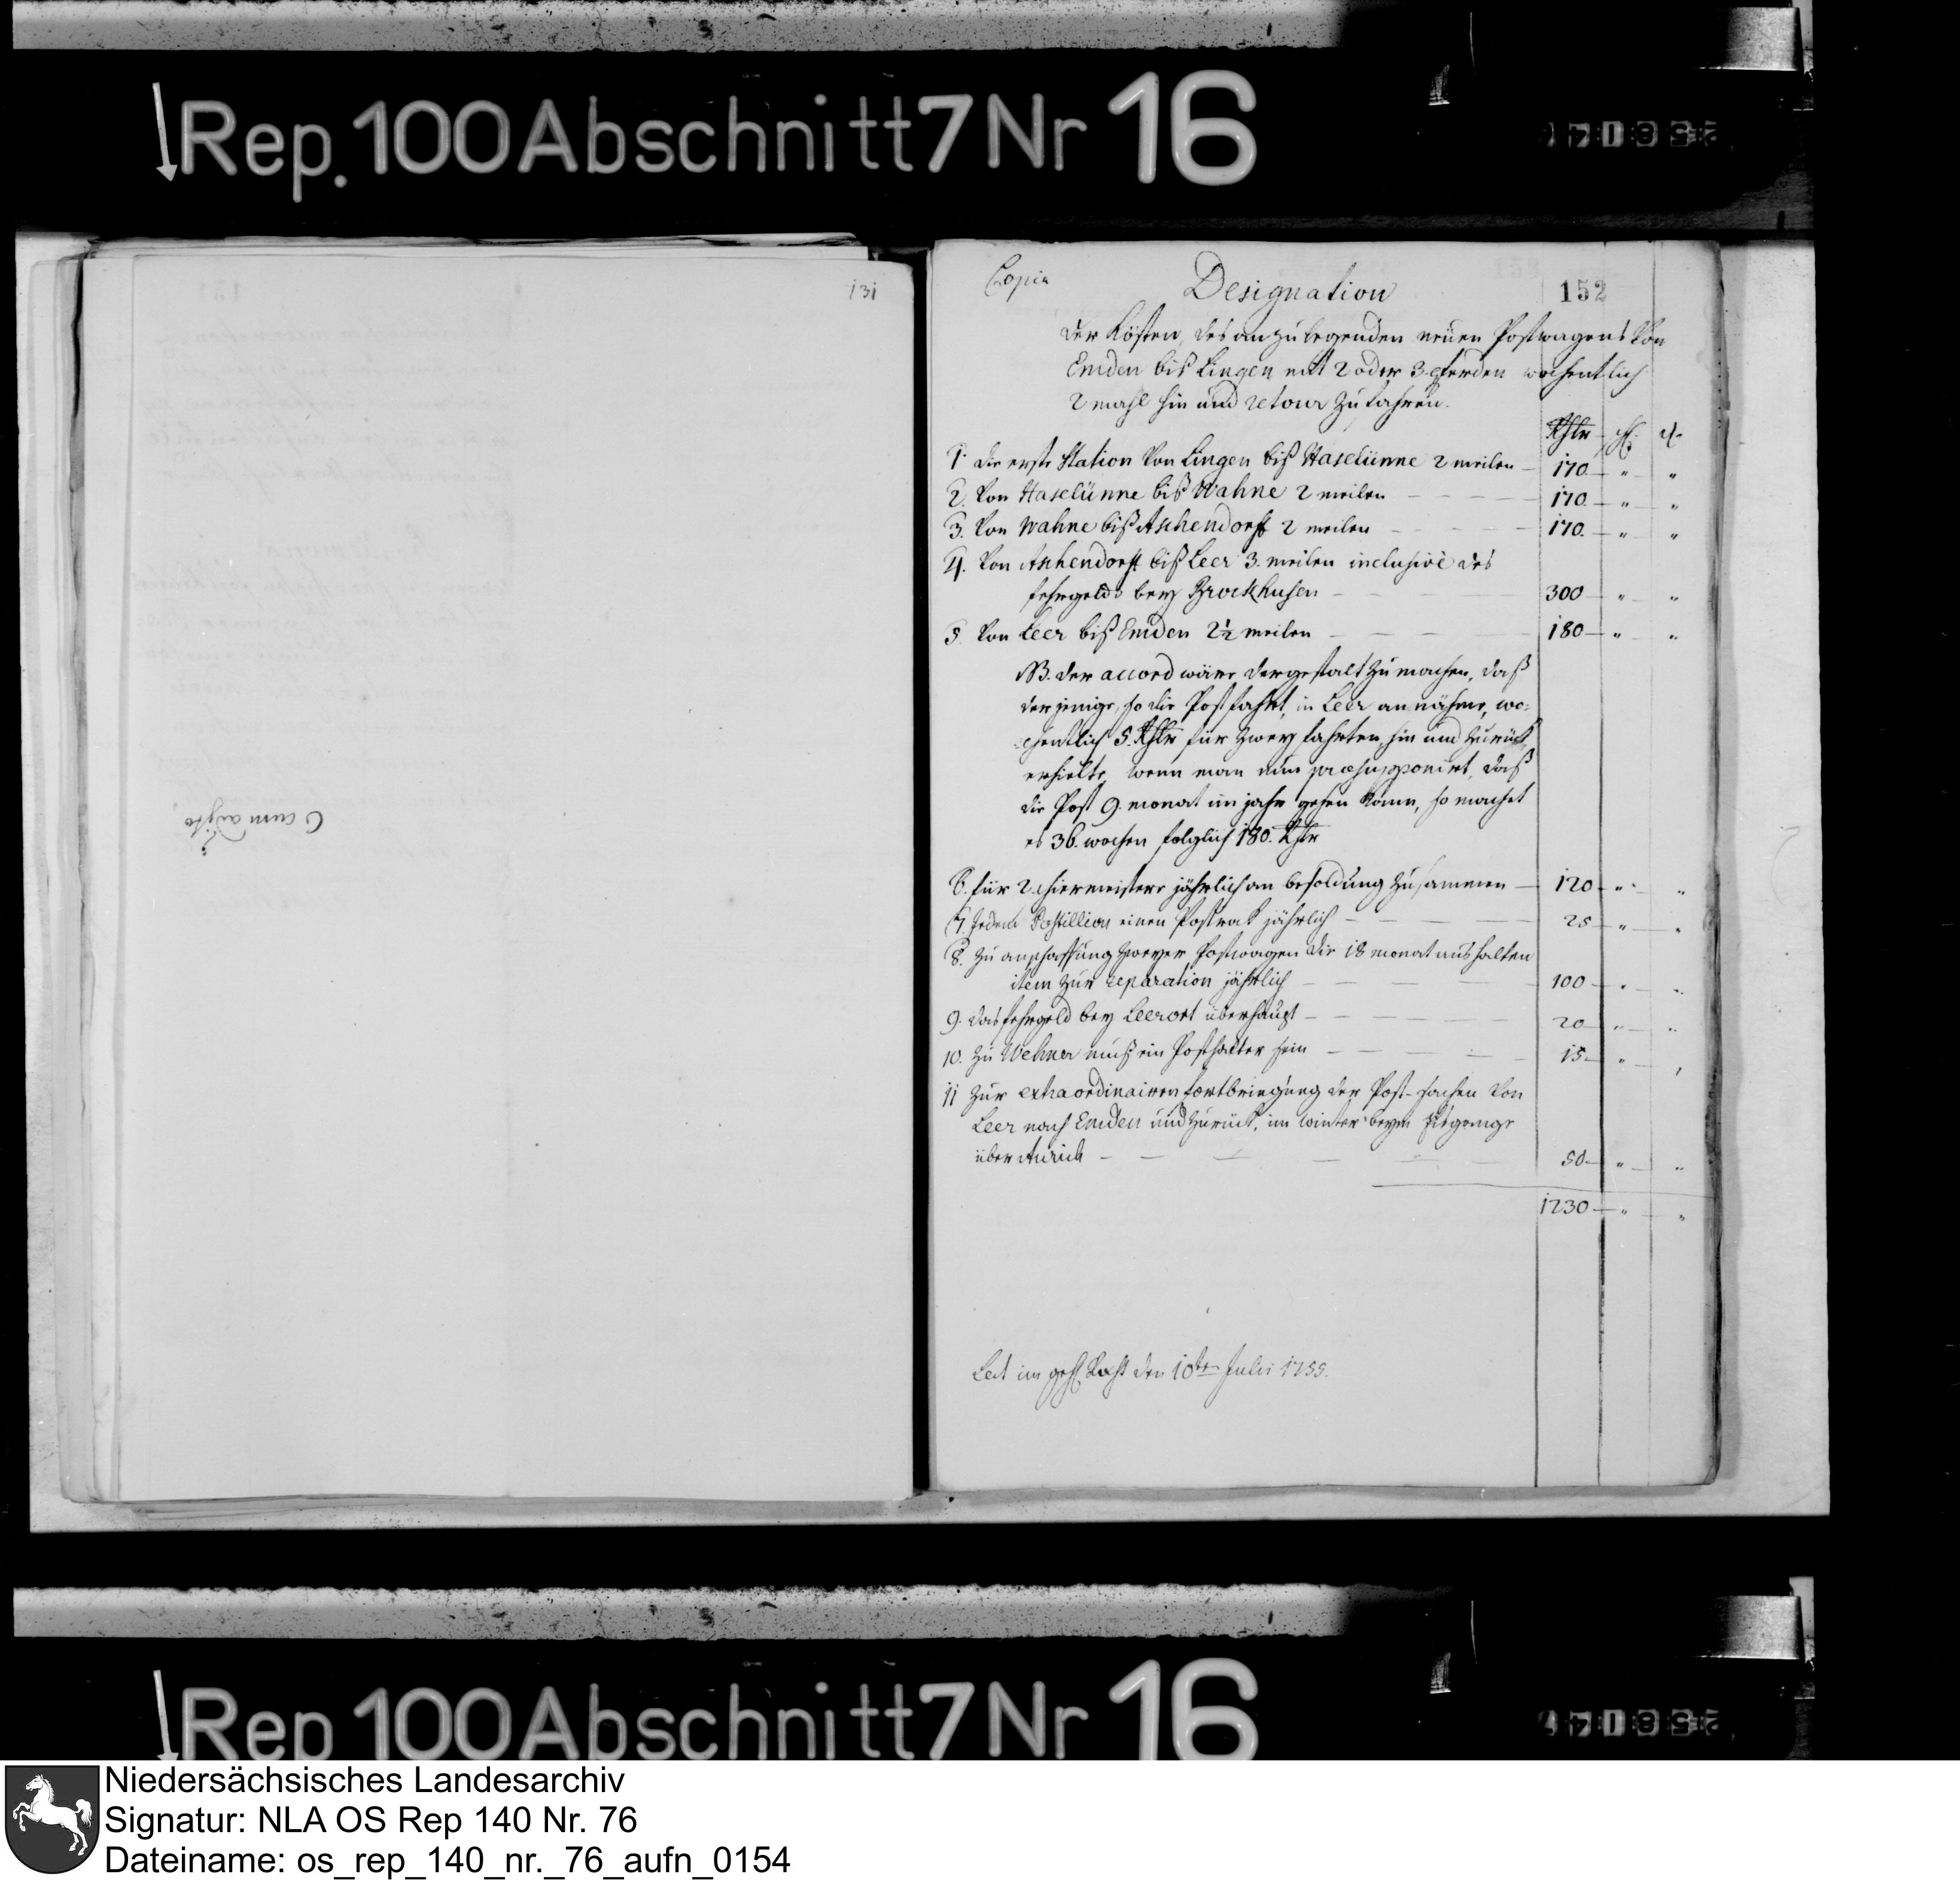 Rep. 100 Abschnitt 7 Nr 16
131
C cum adjto
Copia
Designation
152
der Kösten, des anzulegenden neuen Postwagens von
Emden biß Lingen mit 2 oder 3 pferden wochentlich
2 mahl hin und retour zu fahren.
Rthlr
1. die erste Station von Lingen biß Haselünne 2 meilen — 170 — " — "
2. von Haselünne biß Wahne 2 meilen — 170 — " — "
3. von Wahne biß Aschendorff 2 meilen — 170. — " — "
4. von Aschendorff biß Leer 3. meilen inclusive des
fehrgelds bey Brockhusen — 300 — " — "
5. von Leer biß Emden 2½ meilen — 180 — " — "
NB. der accord wäre dergestalt zu machen, daß
derjenige, so die Postfahrt, in Leer annähme, wo-
chentlich 5. Rthlr für zwey fahrten, hin und zurück
erhielte, wenn man nun praesupponirt, daß
die Post 9. monat im jahr gehen kann, so machet
es 36. wochen folglich 180. Rthlr
6. für 2. schirmeistere jährlich an besoldung zusammen — 120 — " — "
7. Jedem Postillion einen Postrock jährlich — 25 — " — "
8. Zu anschaffung zweyer Postwagen die 18 monat aushalten
item zur reparation jährlich — 100 — " — "
9. das fehrgeld bey Leerort überhaupt — 20 — " — "
10. Zu Wehner muß ein Posthalter sein — 15 — " — "
11 Zur extraordinairen fortbringung der Post-sachen von
Leer nach Emden und zurück, im winter beym Eisgange
über Aurich — 50 — " — "
1230 — " — "
Lect im geh Raht den 10ten Julii 1755.
Rep 100 Abschnitt 7 Nr 16
Niedersächsisches Landesarchiv
Signatur: NLA OS Rep 140 Nr. 76
Dateiname: os_rep_140_nr._76_aufn_0154